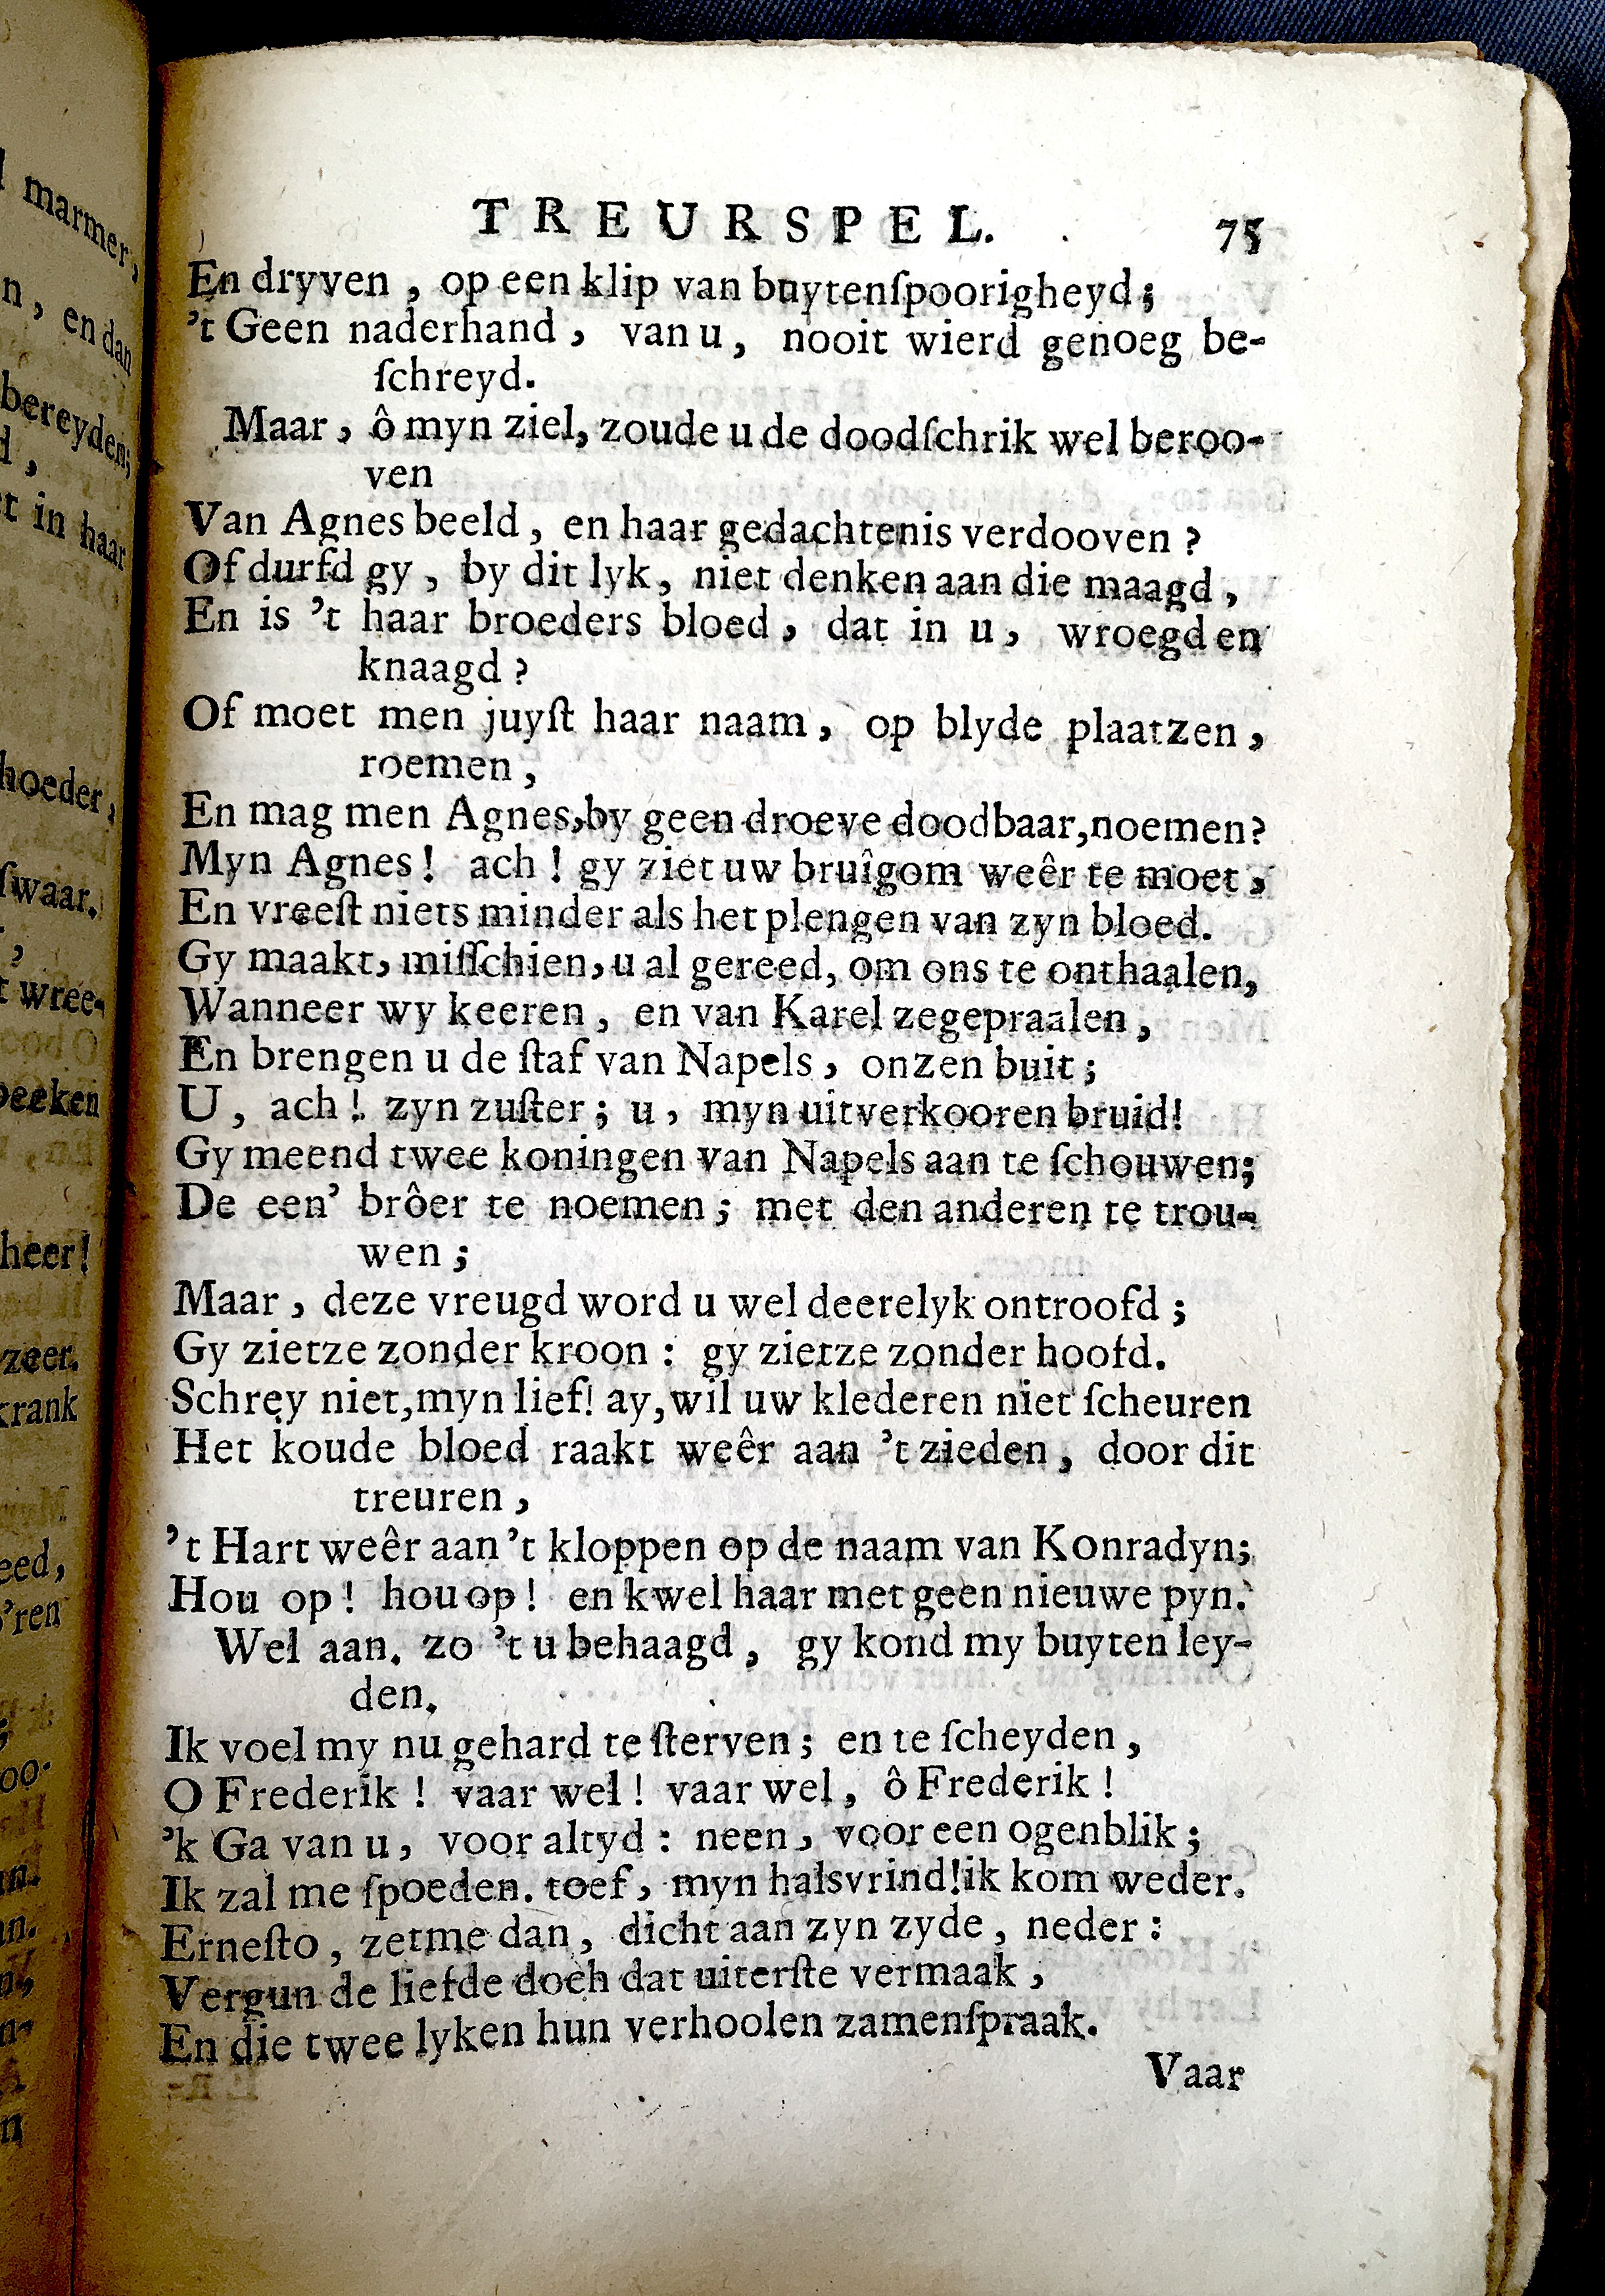 TREURSPEL. 75
En dryven, op een klip van buytenſpoorigheyd;
't Geen naderhand, van u, nooit wierd genoeg be-
ſchreyd.
Maar, ô myn ziel, zoude u de doodſchrik wel beroo-
ven
Van Agnes beeld, en haar gedachtenis verdooven?
Of durfd gy, by dit lyk, niet denken aan die maagd,
En is 't haar broeders bloed, dat in u, wroegd en
knaagd?
Of moet men juyſt haar naam, op blyde plaatzen,
roemen,
En mag men Agnes, by geen droeve doodbaar, noemen?
Myn Agnes! ach! gy ziet uw bruîgom weêr te moet,
En vreeſt niets minder als het plengen van zyn bloed.
Gy maakt, miſſchien, u al gereed, om ons te onthaalen,
Wanneer wy keeren, en van Karel zegepraalen,
En brengen u de ſtaf van Napels, onzen buit;
U, ach! zyn zuſter; u, myn uitverkooren bruid!
Gy meend twee koningen van Napels aan te ſchouwen;
De een' brôer te noemen; met den anderen te trou-
wen;
Maar, deze vreugd word u wel deerelyk ontroofd;
Gy zietze zonder kroon: gy zietze zonder hoofd.
Schrey niet, myn lief! ay, wil uw klederen niet ſcheuren
Het koude bloed raakt weêr aan 't zieden, door dit
treuren,
't Hart weêr aan 't kloppen op de naam van Konradyn;
Hou op! hou op! en kwel haar met geen nieuwe pyn.
Wel aan. zo 't u behaagd, gy kond my buyten ley-
den.
Ik voel my nu gehard te ſterven; en te ſcheyden,
O Frederik! vaar wel! vaar wel, ô Frederik!
'k Ga van u, voor altyd: neen, voor een ogenblik;
Ik zal me ſpoeden. toef, myn halsvrind! ik kom weder.
Erneſto, zetme dan, dicht aan zyn zyde, neder:
Vergun de liefde doch dat uiterſte vermaak,
En die twee lyken hun verhoolen zamenſpraak.
Vaar